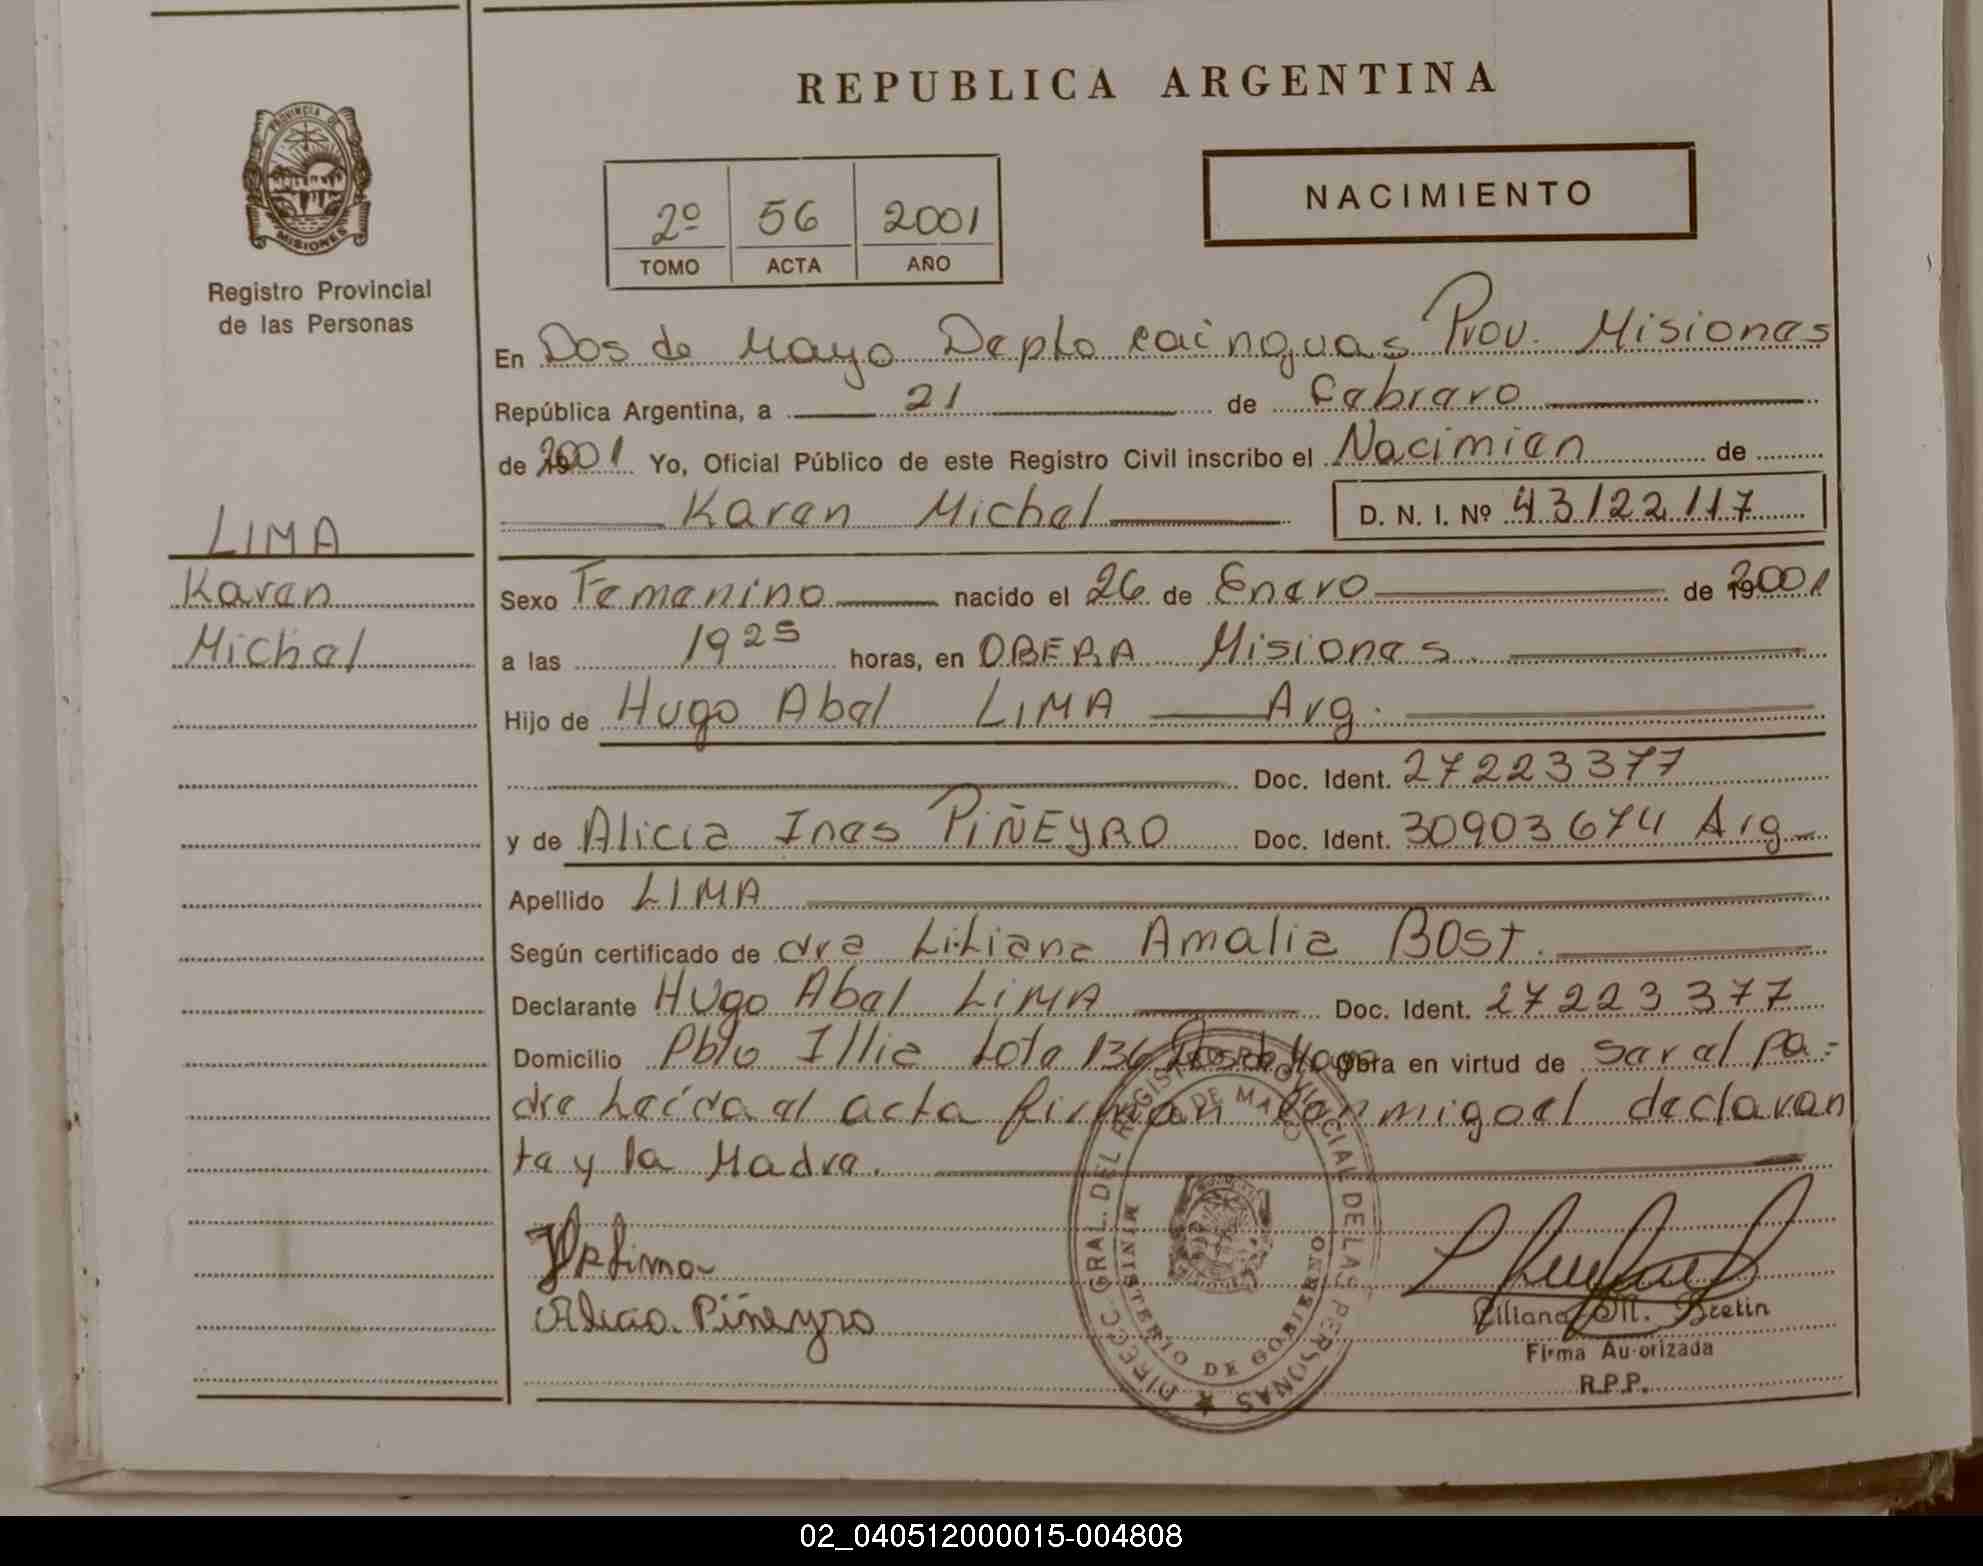 REPUBLICA ARGENTINA
PROVINCIA DE
MISIONES
Registro Provincial
de las Personas
2º 56 2001
TOMO ACTA AÑO
NACIMIENTO
LIMA
Karen
Michel
En Dos de Mayo Depto Cainguas Prov. Misiones
República Argentina, a 21 de Febrero
de 2001 Yo, Oficial Público de este Registro Civil inscribo el Nacimien de
Karen Michel D. N. I. Nº 43122117
Sexo Femenino nacido el 26 de Enero de 2001
a las 1925 horas, en OBERA Misiones.
Hijo de Hugo Abel LIMA Arg.
Doc. Ident. 27223377
y de Alicia Ines PIÑEYRO Doc. Ident. 30903674 Arg
Apellido LIMA
Según certificado de dra Liliana Amalia BOst.
Declarante Hugo Abel LIMA Doc. Ident. 27223377
Domicilio Pblo Illia Lote 136 Dos de Mayo Obra en virtud de ser el pa=
dre Leída el acta firman conmigo el declaran
te y la Madre.
Alicia Piñeyro
DIRECC. GRAL. DEL REGISTRO PROVINCIAL DE LAS PERSONAS
MINISTERIO DE GOBIERNO
DE MAYO
Liliana M.
Firma Autorizada
R.P.P.
02_040512000015-004808